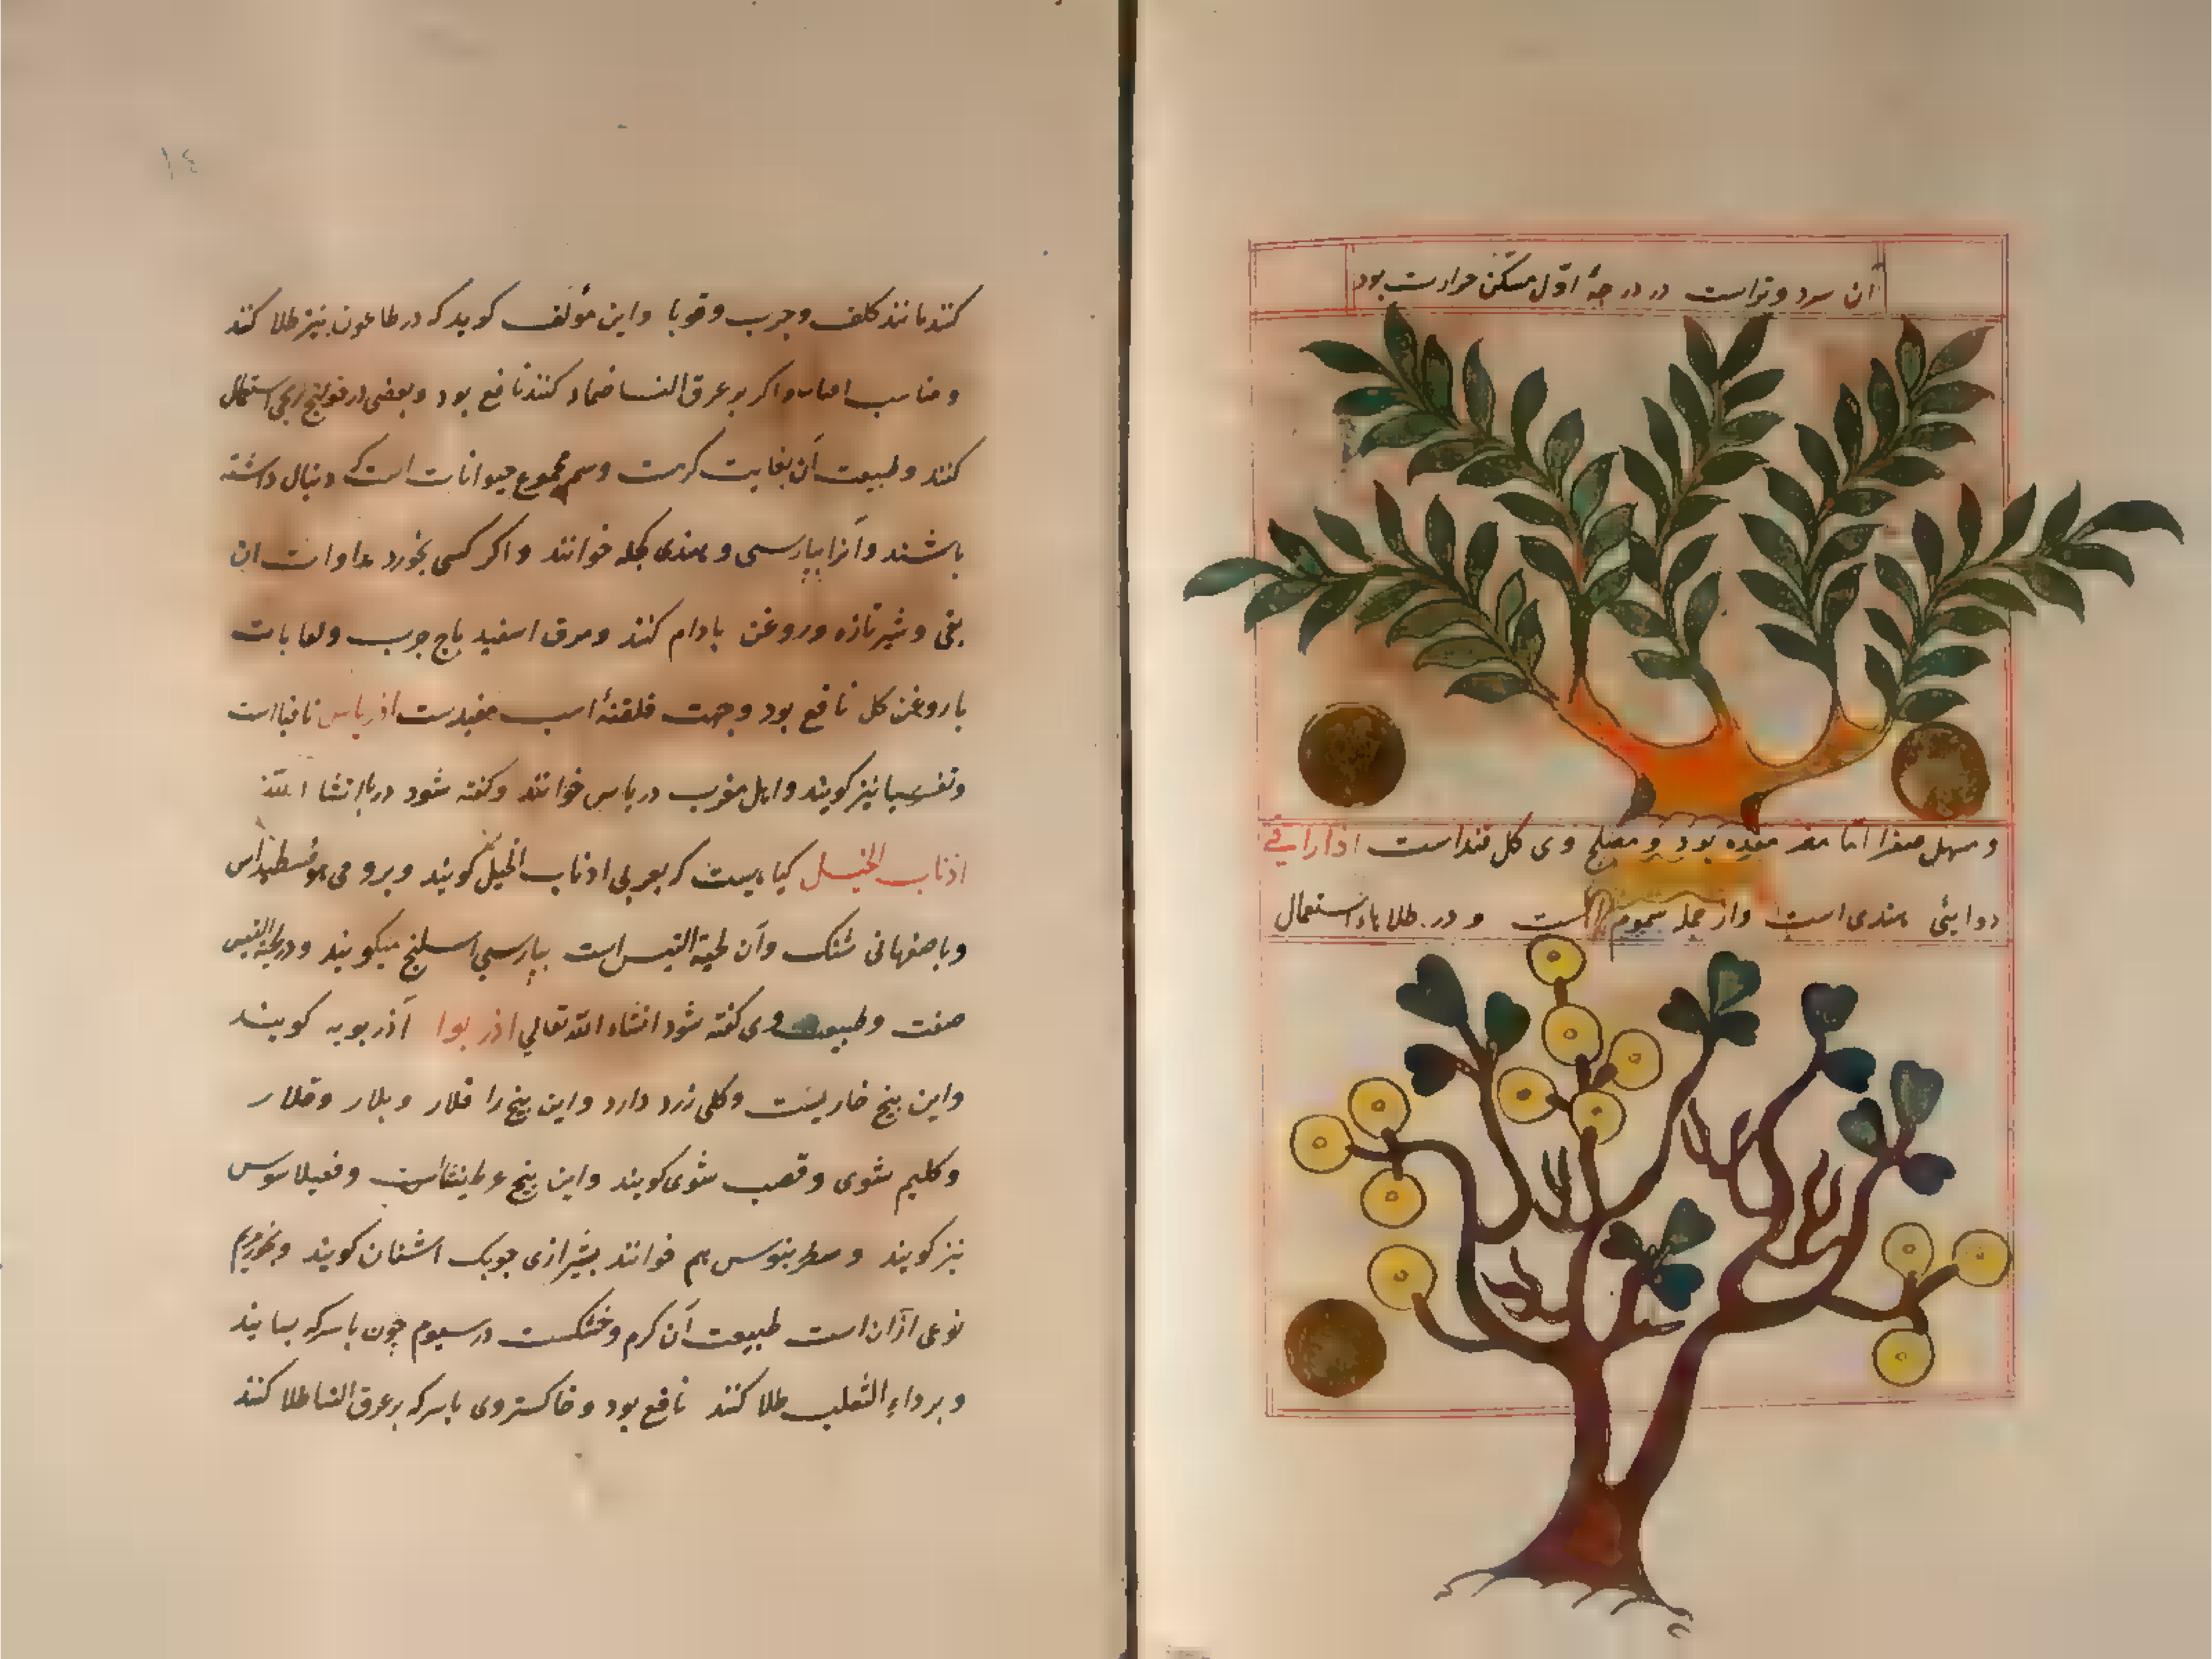 آن سرد و تراست در درجهٔ اوّل مسکّن حرارت بود
و مسهل صفرا امّا مضر معده بود و مصلح وی کل قنداست اداراقی
دوایئی هندی است واز جمله سموم است و در طلاها استعمال
١٤
کنند مانند کلف و جرب و قوبا واین مؤلف کوید که در طاعون نیز طلا کنند
و مناسب واکر بر عرق النسا ضماد کنند نافع بود وبعضی در قولنج ریحی استعمال
کنند و طبیعت آن بغایت کرمست وسم مجموع حیوانات است که دنبال داشته
باشند وآنرا بپارسی و هندی کجله خوانند واکر کسی بخورد مداوات ان
بقی و شیر تازه و روغن بادام کنند ومرق اسفید باج چرب و لعابات
با روغن کل نافع بود وجهت اسب مفیدست اذریاس تافیااست
و نیز کویند واهل مغرب دریاس خوانند وکفته شود دربا انشا الله
اذناب الخیل کیاهیست که بعربی اذناب الخیل کویند وبرومی
وباصفهانی شنک وآن لحیة التیس است بپارسی اسلنج میکویند ودر لحیة التیس
صفت و طبیعت وی کفته شود انشاء الله تعالی اذربوا آذربویه کویند
واین بیخ خاریست وکلی زرد دارد واین بیخ را قلار و بلار وقلار
وکلیم شوی وقصب شوی کویند واین بیخ عرطنیثاست وفعیلاموس
نیز کویند و هم خوانند بشیرازی چوبک اشنان کویند وبخور مریم
نوعی ازآن است طبیعت آن کرم وخشکست در سیوم چون با سرکه بسایند
وبر داء الثعلب طلا کنند نافع بود وخاکستر وی با سرکه بر عرق النسا طلا کنند